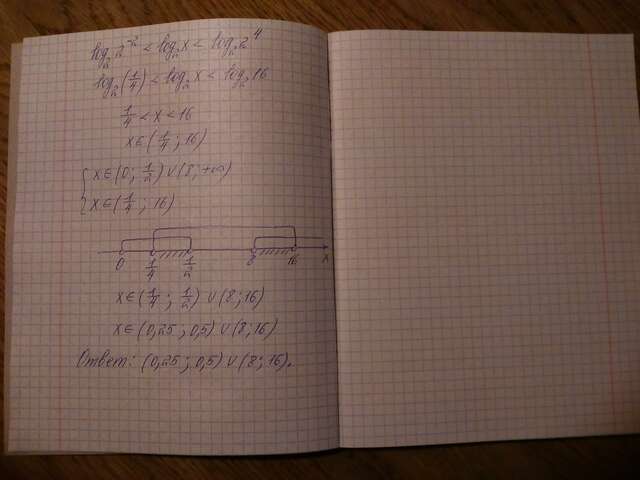 log₂2⁻² < log₂x < log₂2⁴
log₂(1/4) < log₂x < log₂16
1/4 < x < 16
x∈(1/4; 16)
{ x∈(0; 1/2)∪(8; +∞)
x∈(1/4; 16)
0 1/4 1/2 8 16 x
x∈(1/4; 1/2)∪(8; 16)
x∈(0,25; 0,5)∪(8; 16)
Ответ: (0,25; 0,5)∪(8; 16).